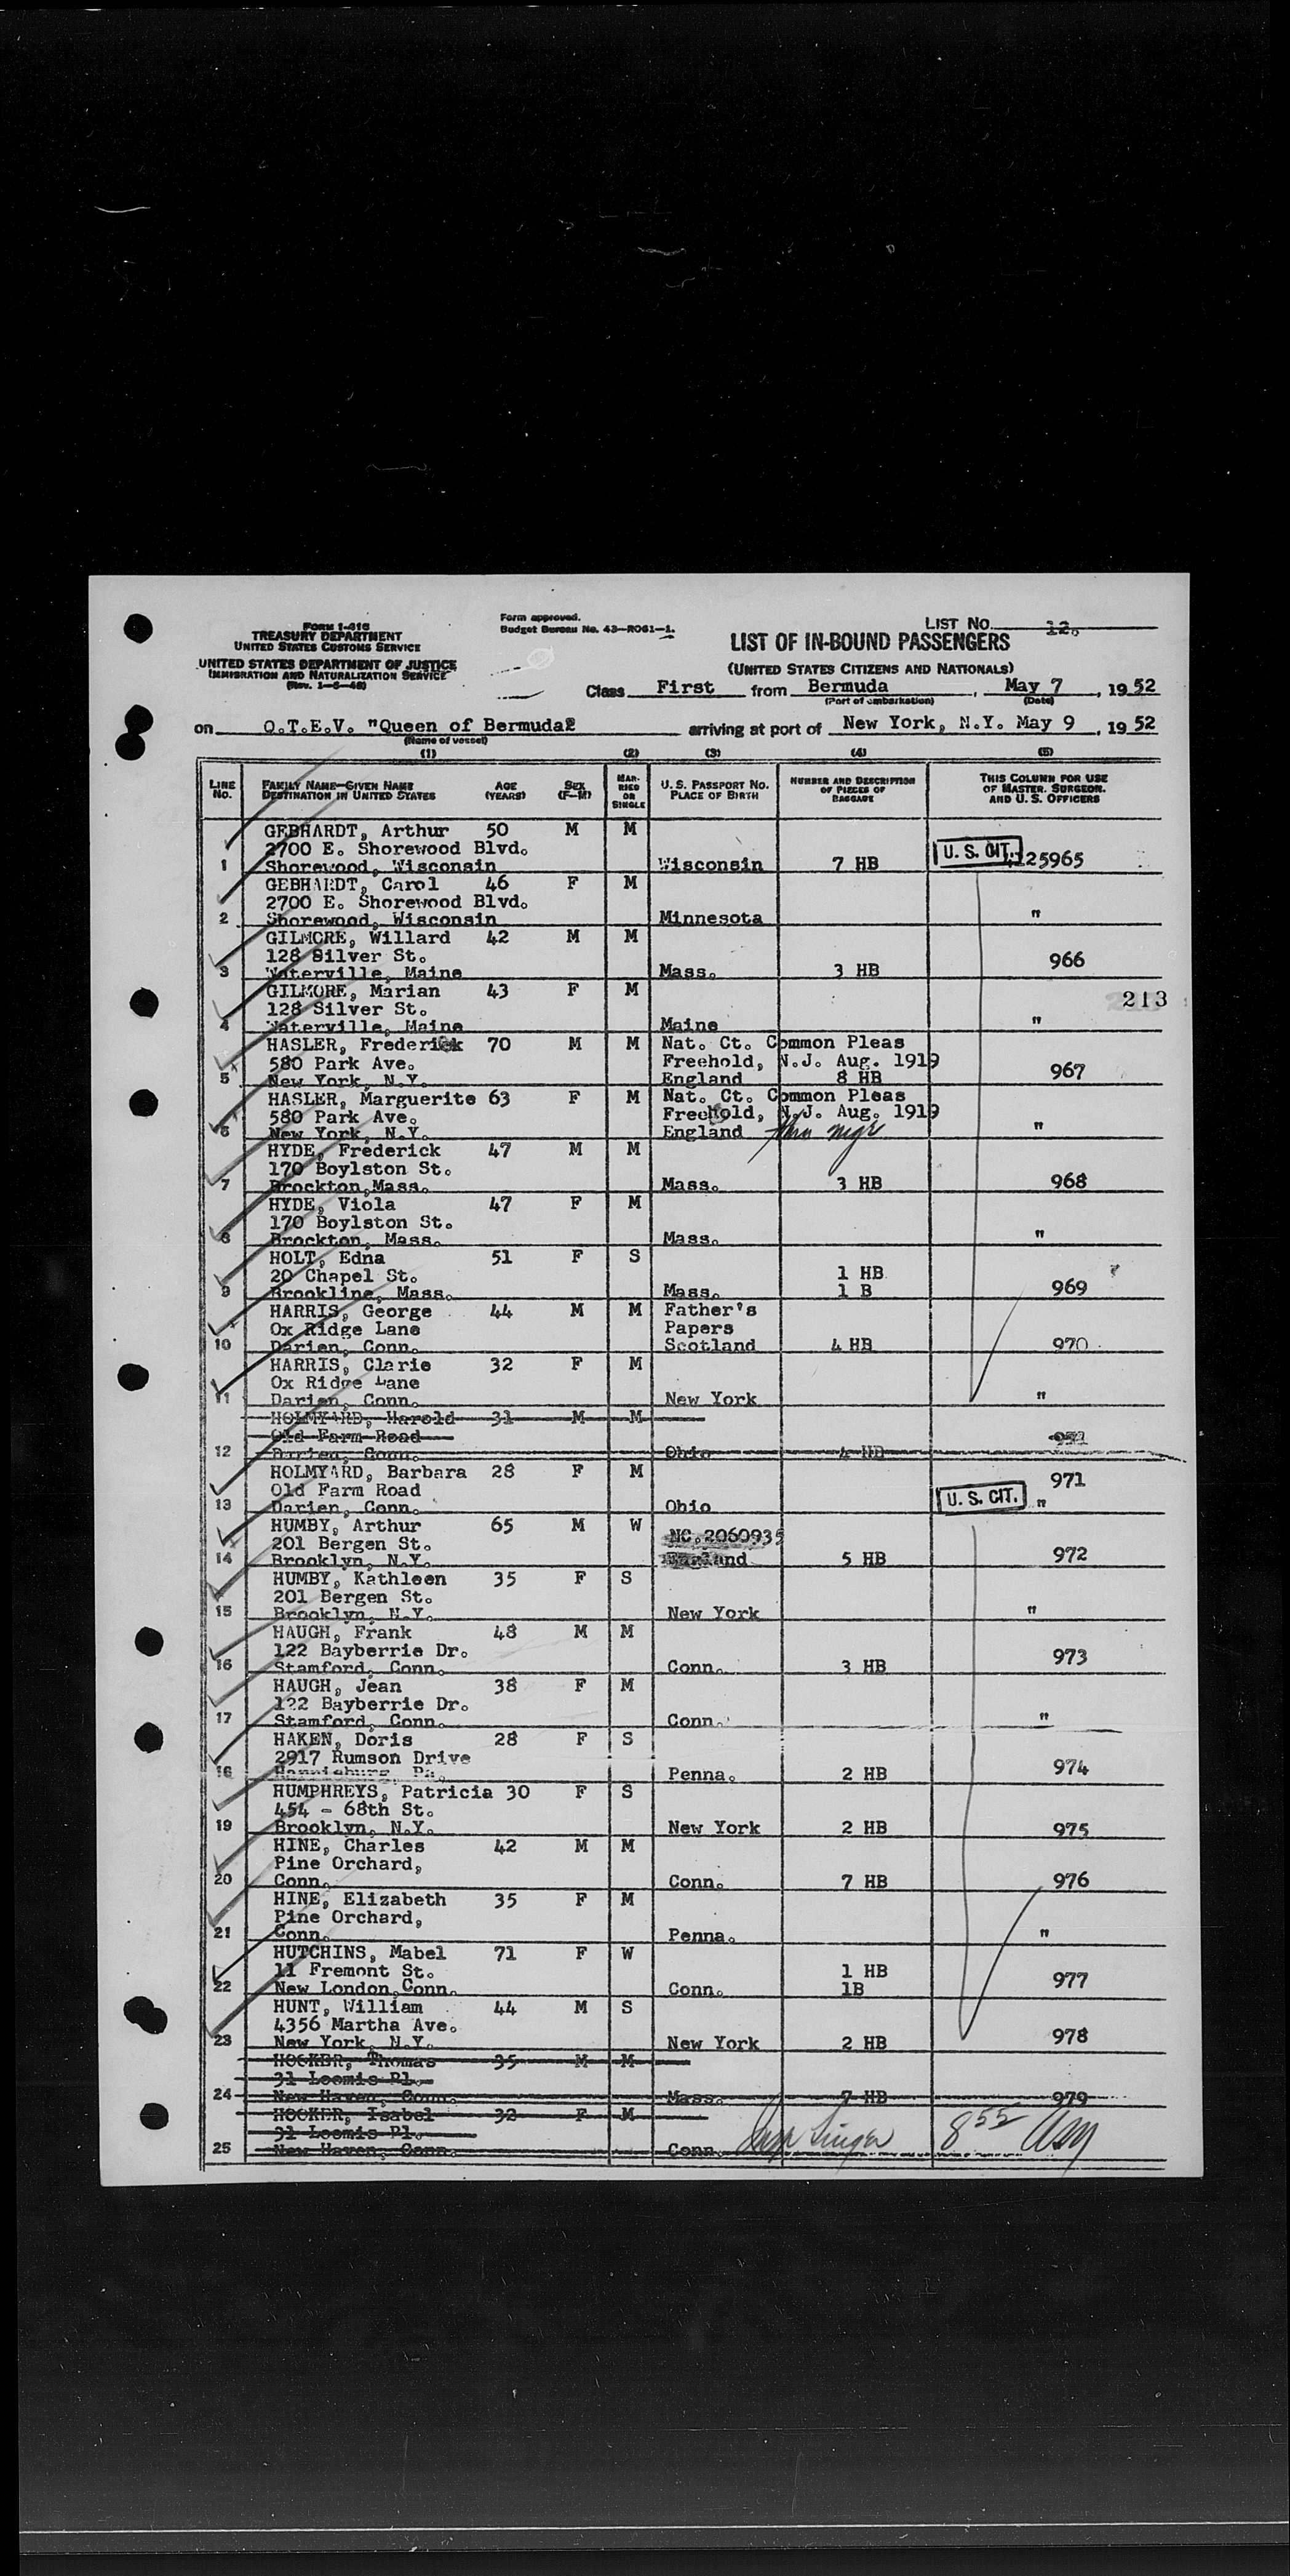 Form I-416
TREASURY DEPARTMENT
UNITED STATES CUSTOMS SERVICE
UNITED STATES DEPARTMENT OF JUSTICE
IMMIGRATION AND NATURALIZATION SERVICE
Form approved.
Budget Bureau No. 43-R061-1.
LIST No. 12.
LIST OF IN-BOUND PASSENGERS
(UNITED STATES CITIZENS AND NATIONALS)
Class First from Bermuda, May 7, 1952
(Port of embarkation) (Date)
on Q.T.E.V. "Queen of Bermuda2 arriving at port of New York, N.Y. May 9, 1952
(Name of vessel)
(1) (2) (3) (4) (5)
LINE No. FAMILY NAME—GIVEN NAME DESTINATION IN UNITED STATES AGE (YEARS) SEX (F-M) MARRIED OR SINGLE U. S. PASSPORT NO. PLACE OF BIRTH NUMBER AND DESCRIPTION OF PIECES OF BAGGAGE THIS COLUMN FOR USE OF MASTER, SURGEON, AND U. S. OFFICERS
GEBHARDT, Arthur 50 M M
2700 E. Shorewood Blvd. U. S. CIT.
1 Shorewood, Wisconsin Wisconsin 7 HB 4125965
GEBHARDT, Carol 46 F M
2700 E. Shorewood Blvd.
2 Shorewood, Wisconsin Minnesota "
GILMORE, Willard 42 M M
128 Silver St. 966
3 Waterville, Maine Mass. 3 HB
GILMORE, Marian 43 F M
128 Silver St. 213
4 Waterville, Maine Maine "
HASLER, Frederick 70 M M Nat. Ct. Common Pleas
580 Park Ave. Freehold, N.J. Aug. 1919
5 New York, N.Y. England 8 HB 967
HASLER, Marguerite 63 F M Nat. Ct. Common Pleas
580 Park Ave. Freehold, N.J. Aug. 1919
6 New York, N.Y. England "
HYDE, Frederick 47 M M
170 Boylston St.
7 Brockton,Mass. Mass. 3 HB 968
HYDE, Viola 47 F M
170 Boylston St.
8 Brockton, Mass. Mass. "
HOLT, Edna 51 F S
20 Chapel St. 1 HB
9 Brookline, Mass. Mass. 1 B 969
HARRIS, George 44 M M Father's
Ox Ridge Lane Papers
10 Darien, Conn. Scotland 4 HB 970
HARRIS, Clarie 32 F M
Ox Ridge Lane
11 Darien, Conn. New York "
HOLMYARD, Harold 31 M M
Old Farm Road
12 Darien, Conn. Ohio 4 HB 971
HOLMYARD, Barbara 28 F M 971
Old Farm Road
13 Darien, Conn. Ohio U. S. CIT. "
HUMBY, Arthur 65 M W NC.2060935
201 Bergen St.
14 Brooklyn, N.Y. England 5 HB 972
HUMBY, Kathleen 35 F S
201 Bergen St.
15 Brooklyn, N.Y. New York "
HAUGH, Frank 48 M M
122 Bayberrie Dr. 973
16 Stamford, Conn. Conn. 3 HB
HAUGH, Jean 38 F M
122 Bayberrie Dr.
17 Stamford, Conn. Conn. "
HAKEN, Doris 28 F S
2917 Rumson Drive 974
18 Harrisburg, Pa. Penna. 2 HB
HUMPHREYS, Patricia 30 F S
454 - 68th St.
19 Brooklyn, N.Y. New York 2 HB 975
HINE, Charles 42 M M
Pine Orchard,
20 Conn. Conn. 7 HB 976
HINE, Elizabeth 35 F M
Pine Orchard,
21 Conn. Penna. "
HUTCHINS, Mabel 71 F W
11 Fremont St. 1 HB
22 New London,Conn. Conn. 1B 977
HUNT, William 44 M S
4356 Martha Ave.
23 New York, N.Y. New York 2 HB 978
HOOKER, Thomas 35 M M
31 Loomis Pl.
24 New Haven, Conn. Mass. 7 HB 979
HOOKER, Isabel 32 F M
31 Loomis Pl. 8 55
25 New Haven, Conn. Conn.